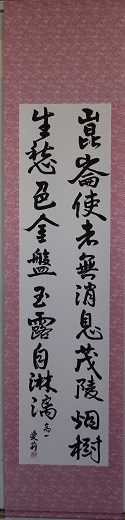 崑崙使者無消息茂陵烟樹
生愁色金盤玉露自淋漓
高一